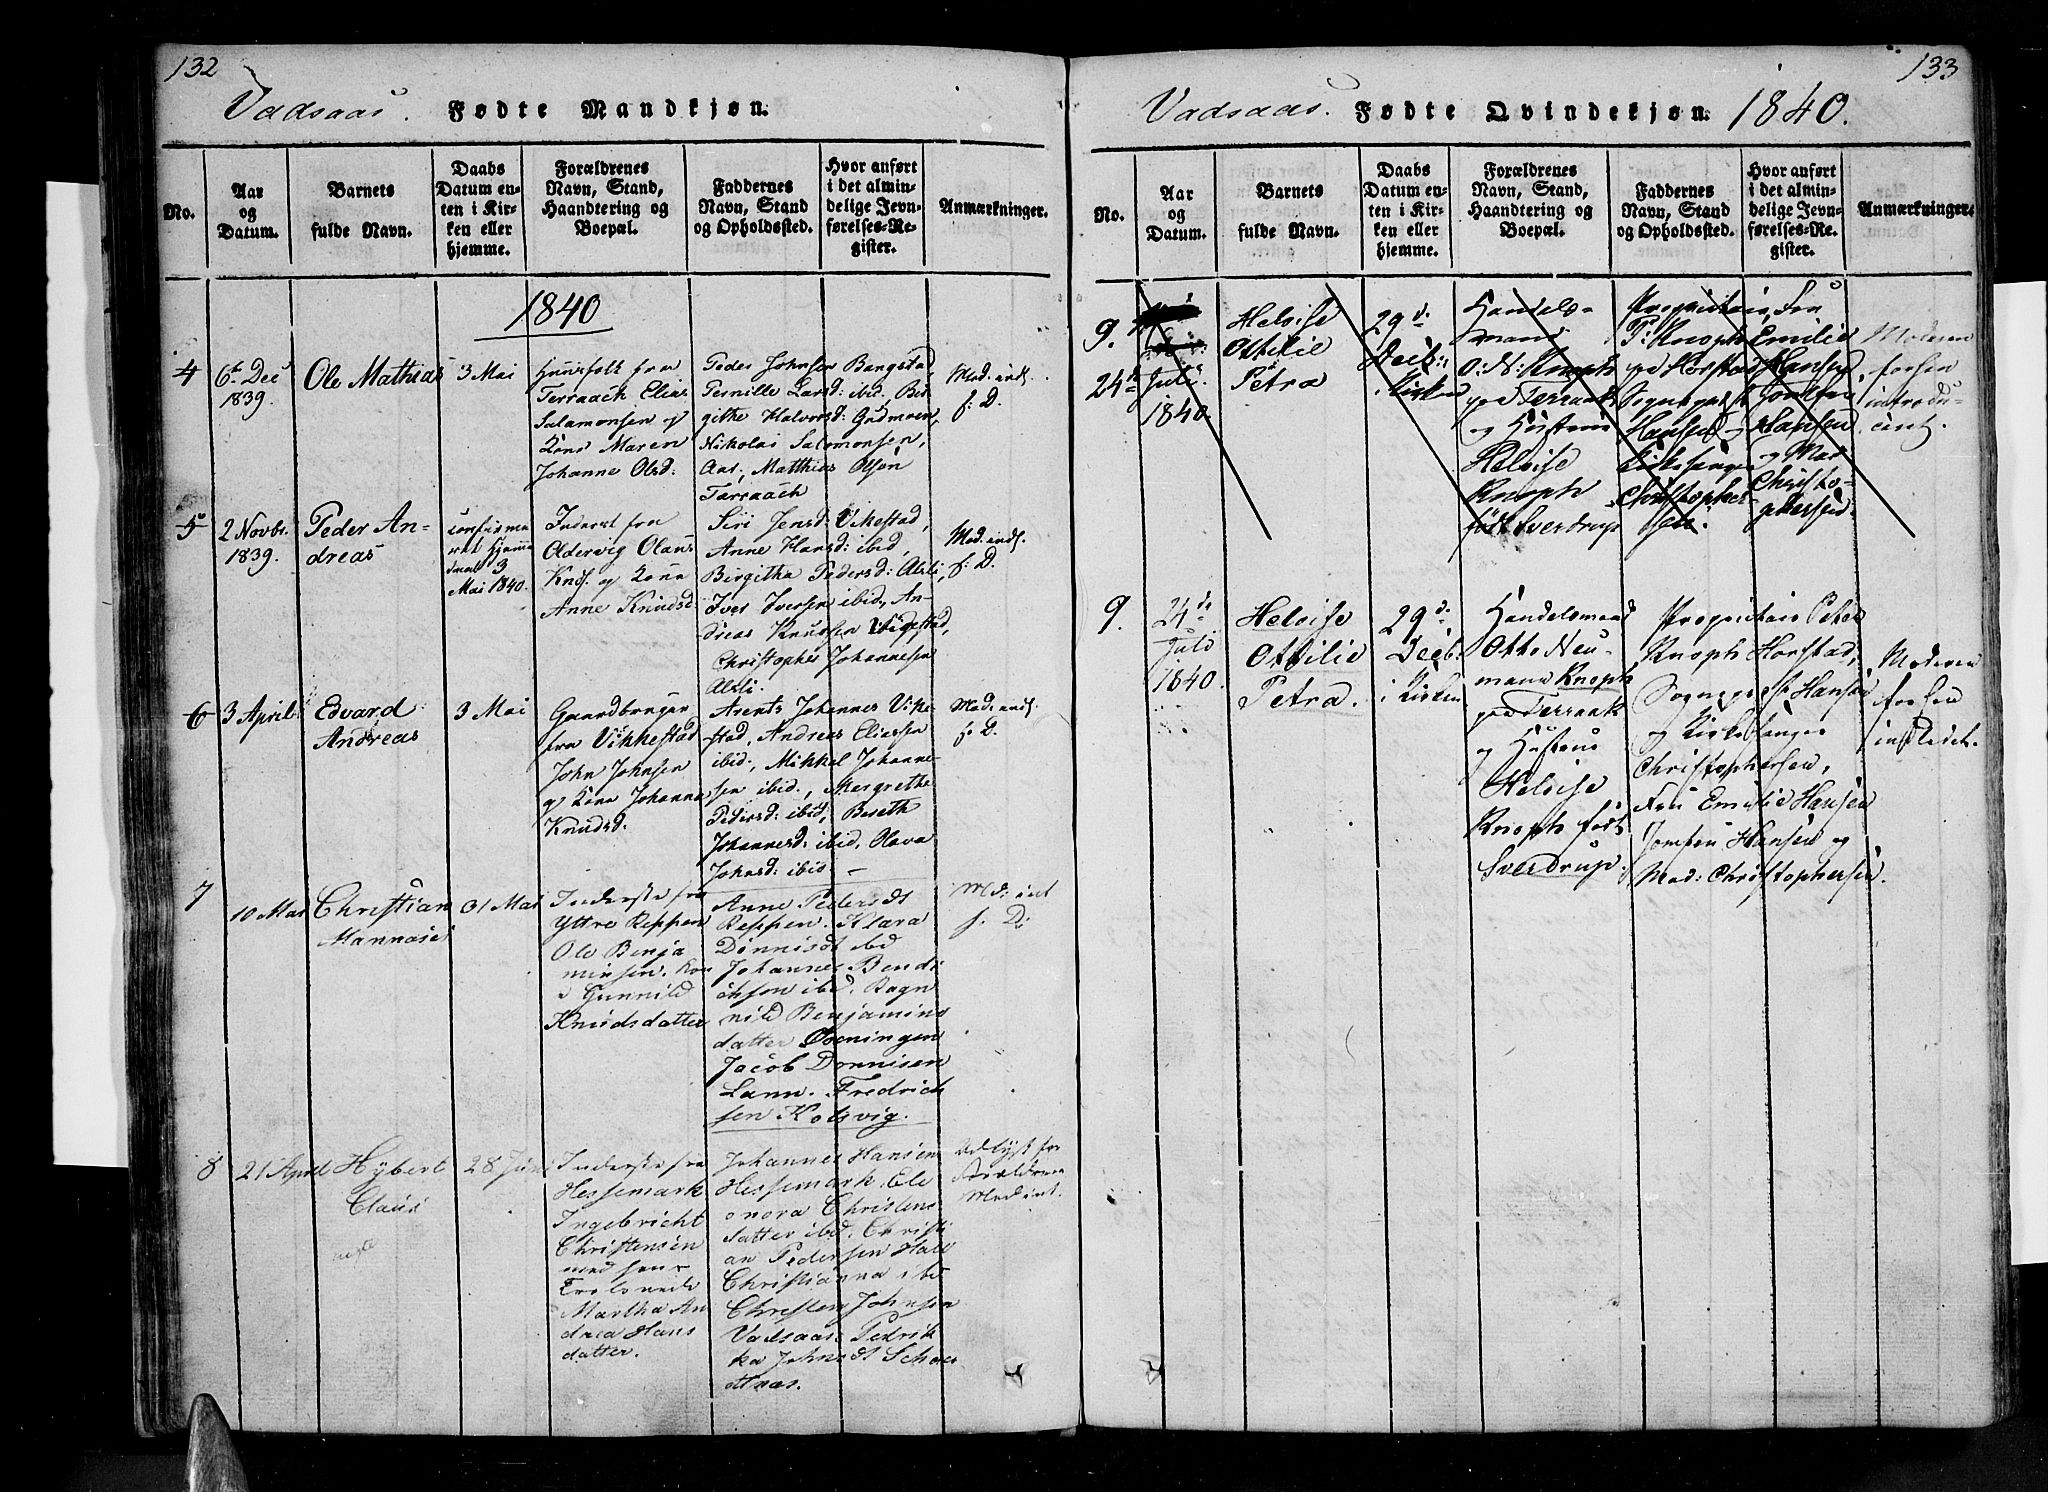 132
Vadsaas. Fødte Mandkjøn.
No.
Aar
og
Datum.
Barnets
fulde Navn.
Daabs
Datum en-
ten i Kir-
ken eller
hjemme.
Forældrenes
Navn, Stand,
Haandtering og
Boepæl.
Faddernes
Navn, Stand
og Opholdssted.
Hvor anført
i det almin-
delige Jevn-
førelses-Re-
gister.
Anmærkninger.
1840
4
6te Dec
1839.
Ole Mathias
3 Mai
Huusfolk fra
Terraach Elias
Salamonsen og
Kone Maren
Johanne Olsd:
Peder Johnsen Bangstad,
Pernille Larsd: ibid, Bir-
githe Halvorsd: Grdmoen,
Nikolai Salomonsen,
Aas, Matthias Olsøn
Tarraach
Mod. inds.
f: D.
5
2 Novbr.
1839.
Peder An-
dreas
confirme
ret hjemme
døbt 3
Mai 1840.
Inderst fra
Oldervig Olaus
Knds. og Kone
Anne Knudsd
Siri Jensd: Vikestad,
Anne Hansd: ibid,
Birgitha Pedersd: Alsli,
Iver Iversen ibid, An-
dreas Knudsen Vigestad,
Christopher Johannesen
Alsli.
Mod. inds.
f: D.
6
3 April
Edvard
Andreas
3 Mai
Gaardbruger
fra Vikkestad
John Johnsen
og Kone Johanna
Knudsd.
Arents Johannes Vike-
stad, Andreas Eliassen
ibid., Mikkel Johanne-
sen ibid., Mergrethe
Pedersd: ibid, Bereth
Johannesd: ibid, Olava
Johnsd: ibid. —
Mod. inds.
f: D.
7
10 Mai
Christian
Mannases
31 Mai
Inderste fra
Yttre Reppen
Ole Benja
minsen. Kon
e Gunnild
Knudsdatter
Anne Pedersdt
Reppen. Klara
Dønnisdt ibd
Johannes Bendi
chsen ibd. Ragn
nild Benjamins
datter Øveningen
Jacob Donnisen
Lann. Fredrich
sen Kolsvig.
Mod: int
f. D:
8
21 April
Hybert
Claus
28 Juni
Inderste fra
Hessemark
Ingebricht
Christensen
med sin
Trolovede
Martha An
drea Hans
datter.
Johannes Hansen
Hessemark, Ele
onora Christens
datter ibd. Christi
an Pedersen Hald
Christianna ibd
Christen Johnsen
Vadsaas. Pedrik
ka Johnsdt
Udlyst for
Forældrene
Mod int.
133
Vadsaas. Fødte Qvindekjøn. 1840.
No.
Aar
og
Datum.
Barnets
fulde Navn.
Daabs
Datum en-
ten i Kir-
ken eller
hjemme.
Forældrenes
Navn, Stand,
Haandtering og
Boepæl.
Faddernes
Navn, Stand
og Opholdssted.
Hvor anført
i det almin-
delige Jevn-
førelses-Re-
gister.
Anmærkninger.
9.
24de
Juli
1840.
Heloise
Ottilie
Petra
29d:
Decb:
i Kirken
Handels-
mand
O: N: Knoph
paa Terraak
og Hustrue
Heloise
Knoph
født Sverdrup
Proprietair
P: Knoph
paa Horstad
Sogneprest
Hansen og
Kirkesanger
Christopher-
sen.
Fru
Emilie
Hansen
Jomfru
Hansen
og Mad
Christo-
phersen.
Moderen
forhen
introdu-
ceret.
9.
24de
Juli
1840.
Heloise
Ottilie
Petra.
29d:
Decb:
i Kirken
Handelsmand
Otto Neu-
mann Knoph
paa Terraak
og Hustrue
Heloise
Knoph født
Sverdrup.
Proprietair Peter
Knoph Horstad,
Sognepr. Hansen
og Kirkesanger
Christophersen,
Fru Emilie Hansen
Jomfru Hansen og
Mad: Christophersen.
Moderen
forhen
indledet.